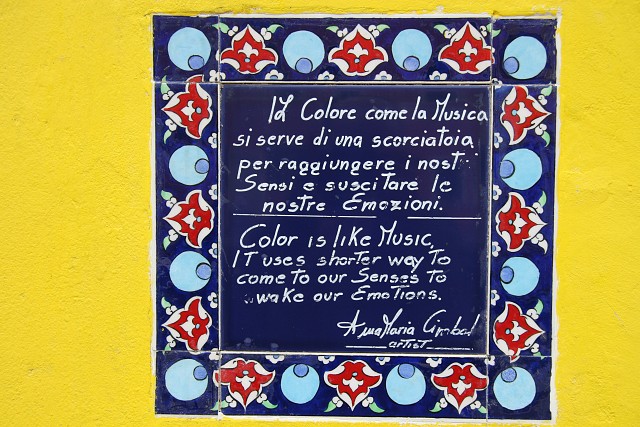 Il Colore come la Musica
si serve di una scorciatoia
per raggiungere i nostri
Sensi e suscitare le
nostre Emozioni.
Color is like Music,
IT uses shorter way To
come to our Senses To
awake our EmoTions.
AnaMaria
artist